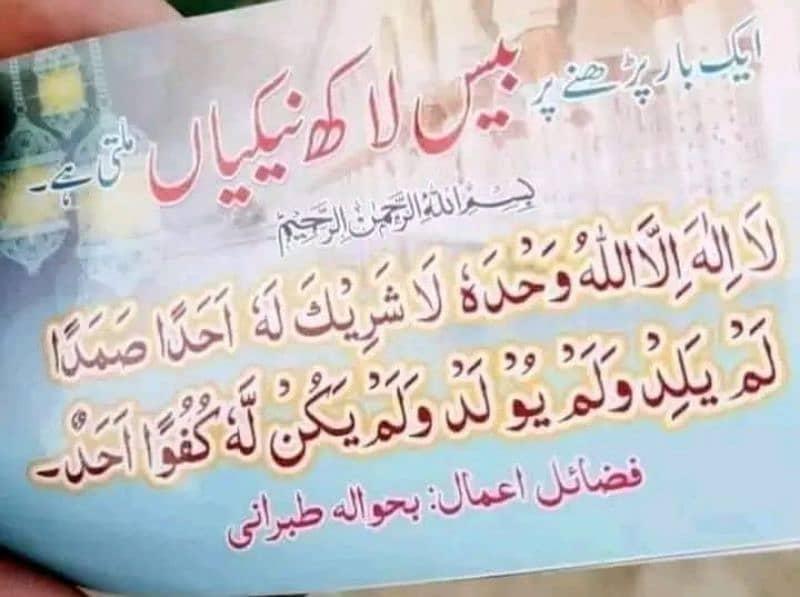 ایک بار پڑھنے پر بیس لاکھ نیکیاں ملتی ہے۔
بِسْمِ اللّٰهِ الرَّحْمٰنِ الرَّحِيْمِ
لَا اِلٰهَ اِلَّا اللّٰهُ وَحْدَهٗ لَا شَرِيْكَ لَهٗ اَحَدًا صَمَدًا
لَمْ يَلِدْ وَلَمْ يُوْلَدْ وَلَمْ يَكُنْ لَّهٗ كُفُوًا اَحَدٌ۔
فضائل اعمال: بحوالہ طبرانی